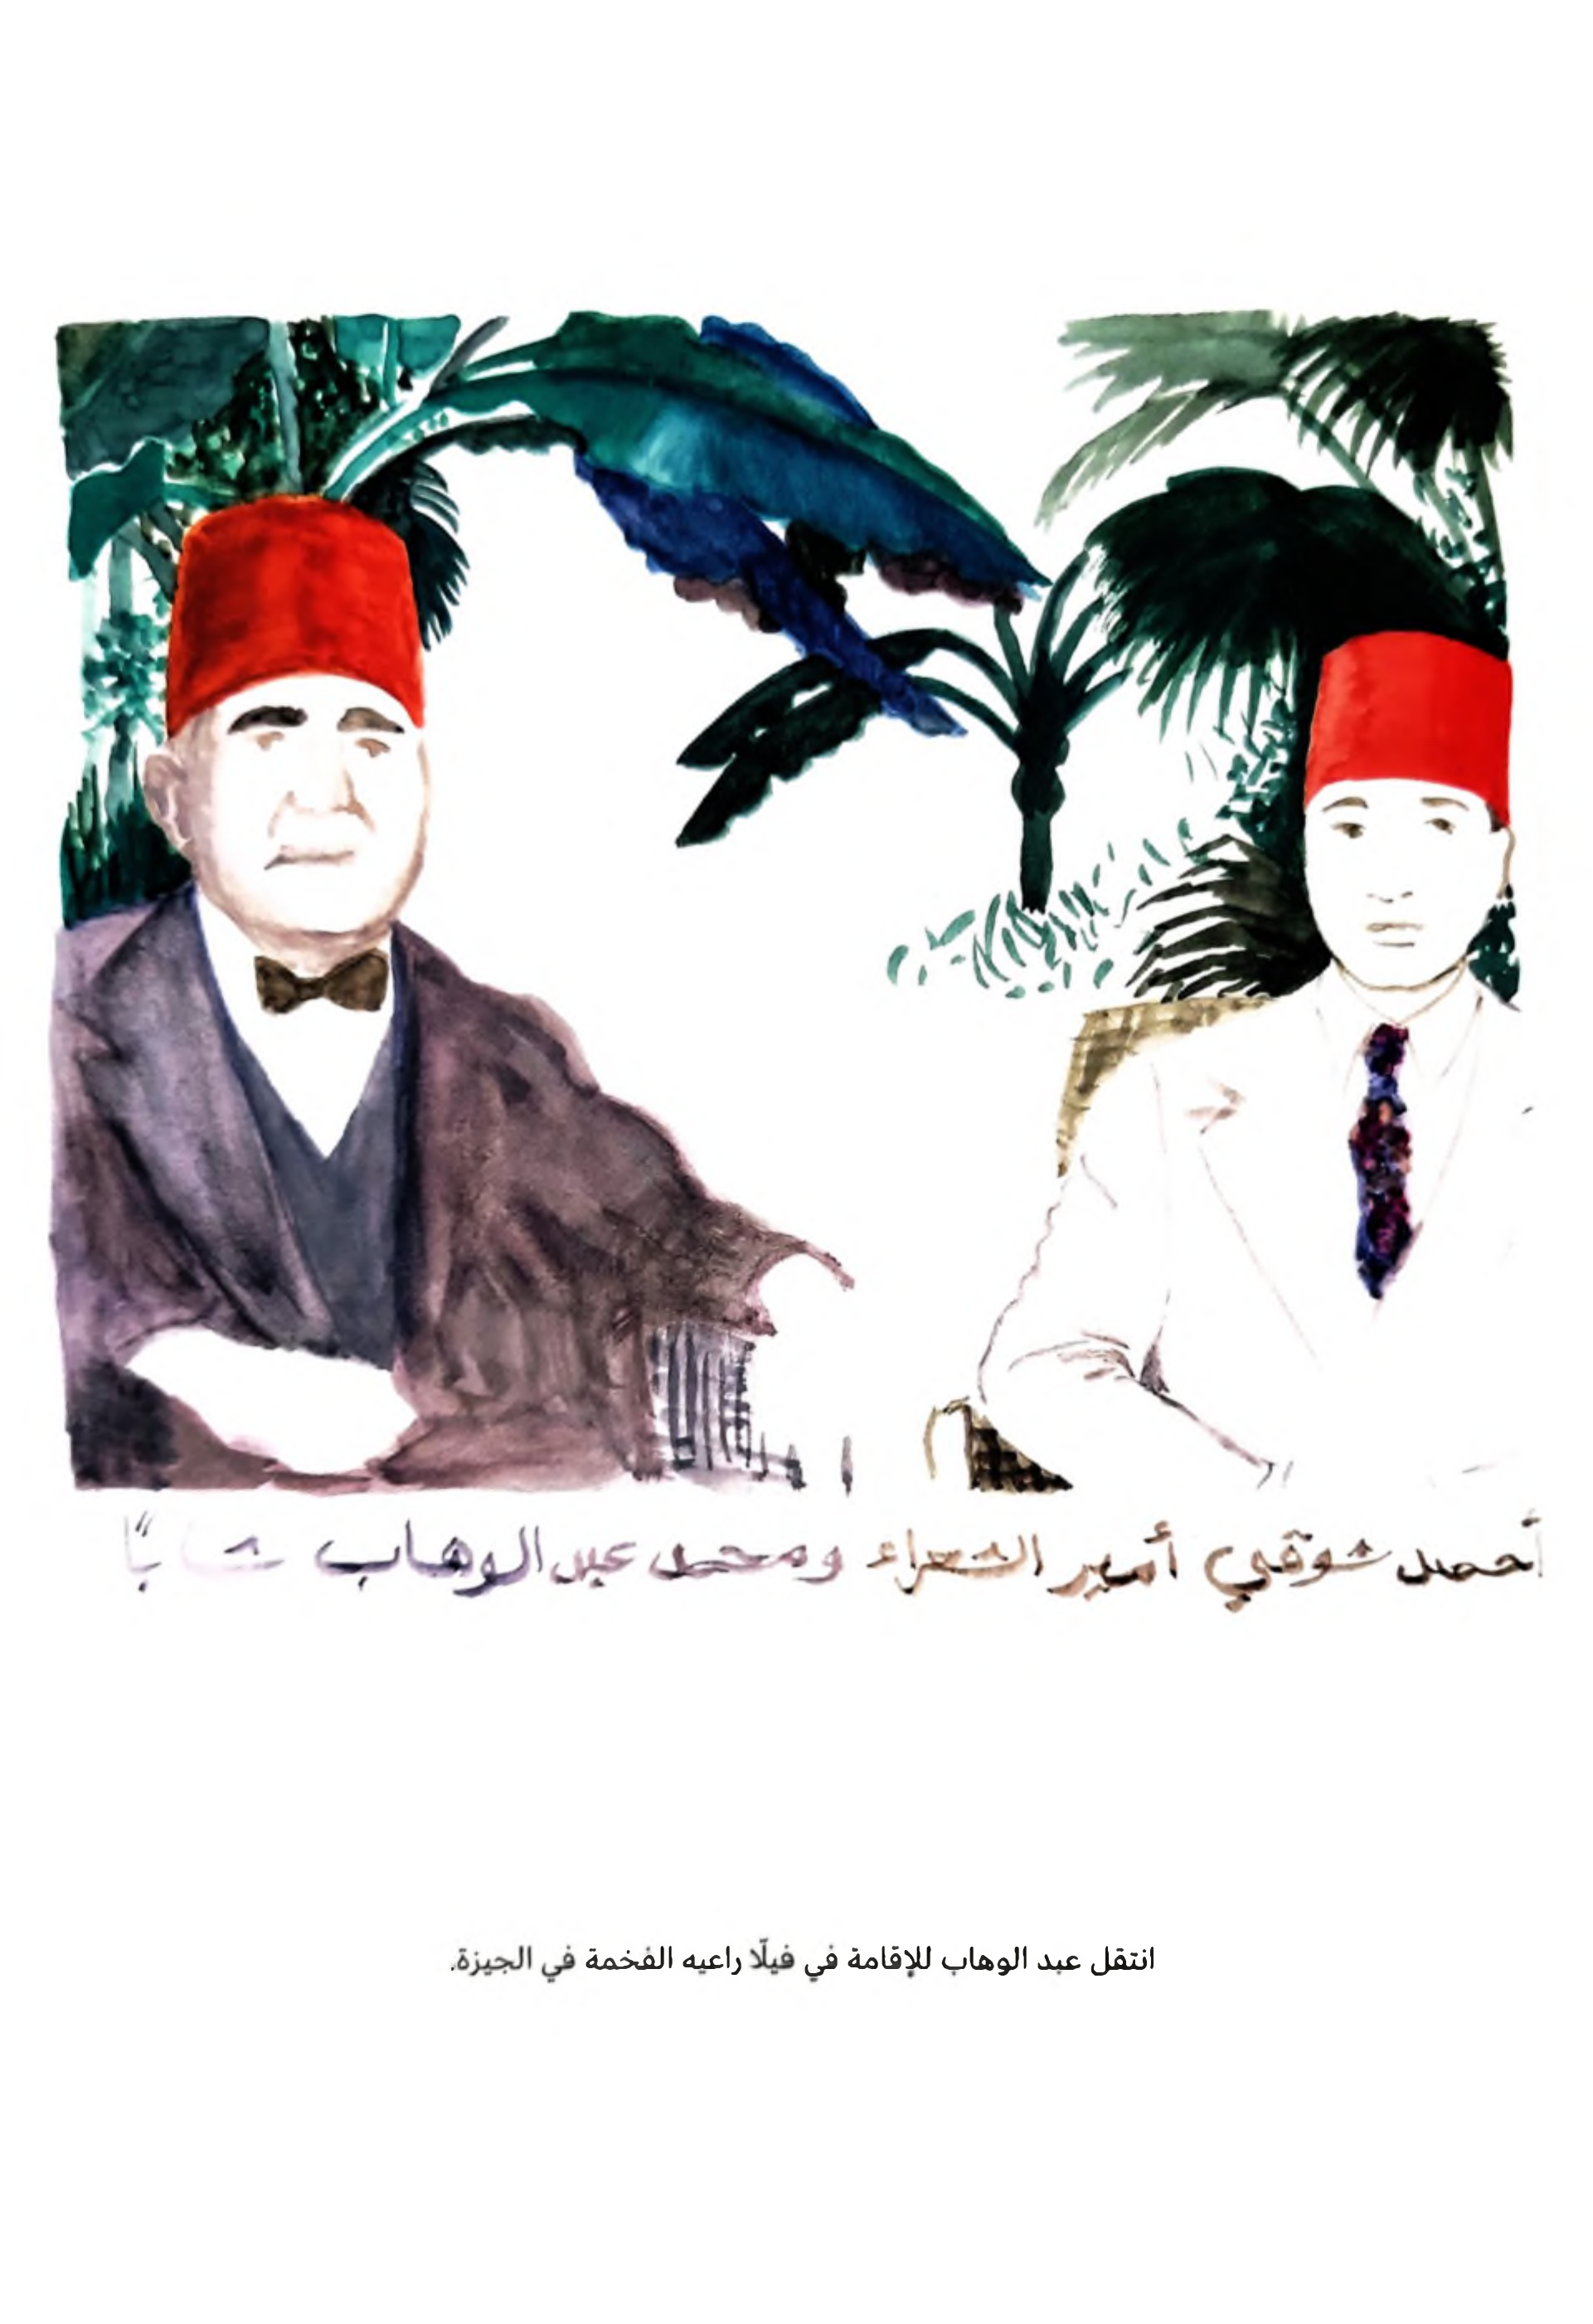 أحمد شوقي أمير الشعراء ومحمد عبد الوهاب شابًا
انتقل عبد الوهاب للإقامة في فيلّا راعيه الفخمة في الجيزة.